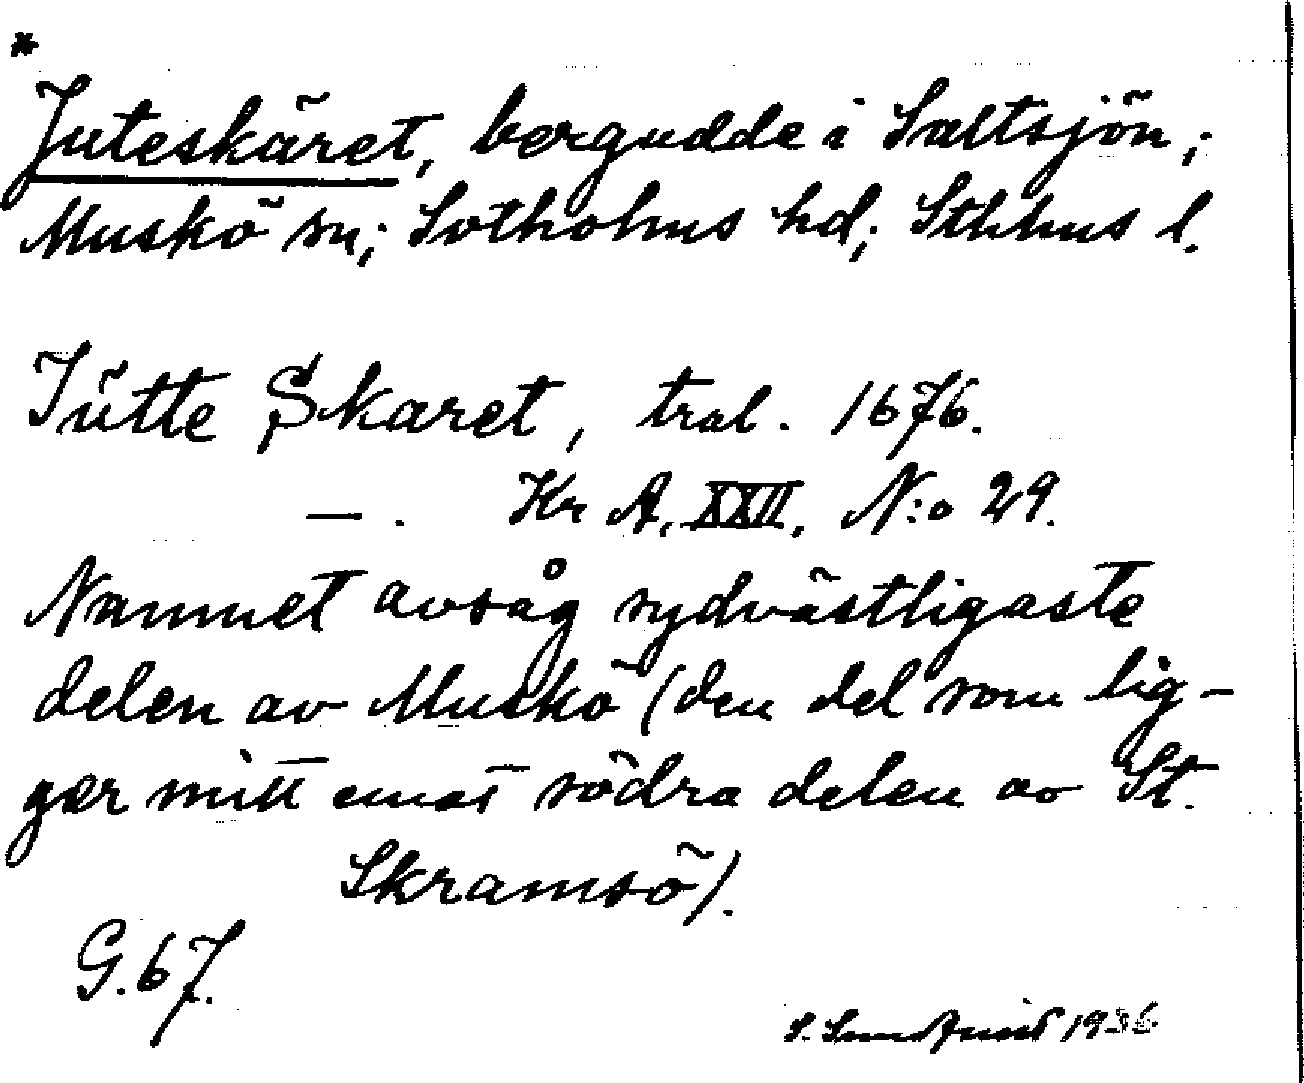 *
Juteskäret, bergudde i Saltsjön;
Muskö sn; Sotholms hd; Sthlms l.
Jütte Skaret, tral. 1676.
— . Kr A, XXII, N:o 29.
Namnet avsåg sydvästligaste
delen av Muskö (den del som lig-
ger mitt emot södra delen av St.
Skramsö).
G. 67.
S. 1936